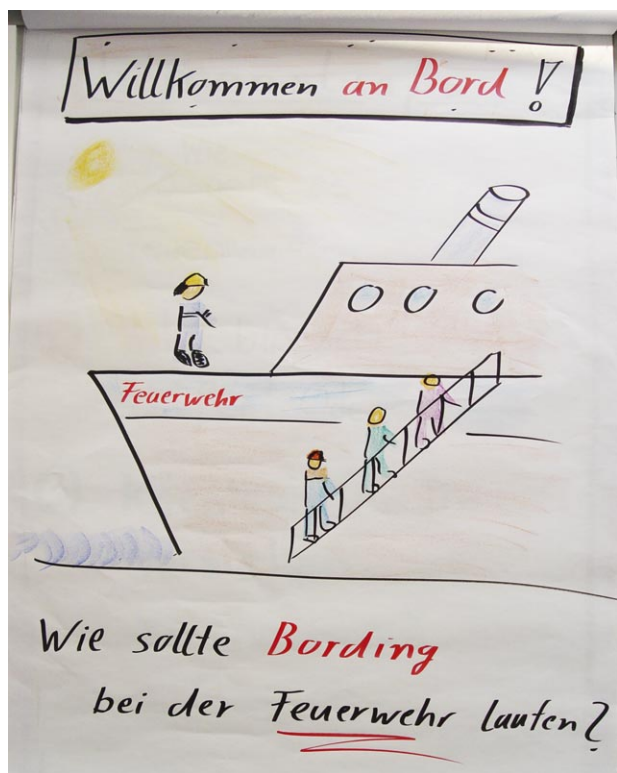 Willkommen an Bord !
Feuerwehr
Wie sollte Bording
bei der Feuerwehr laufen?